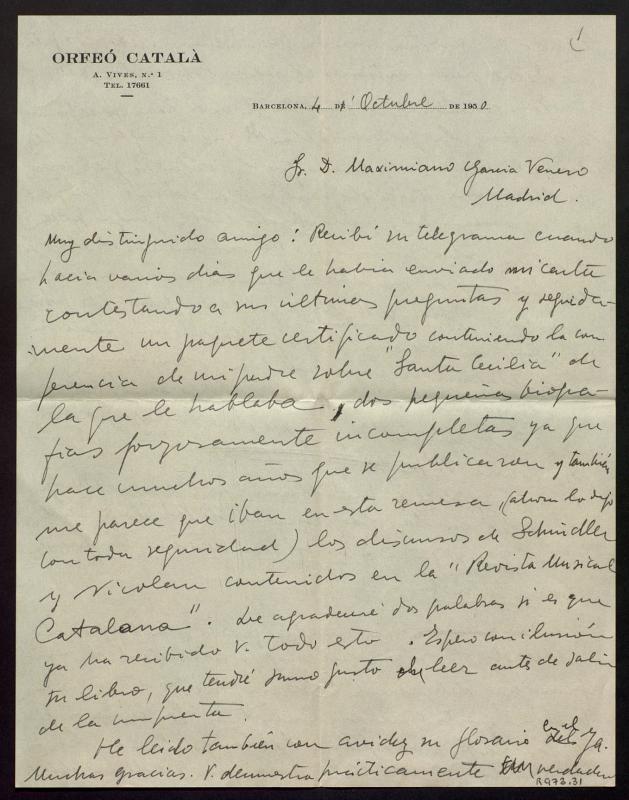 ORFEÓ CATALÀ
A. VIVES, N.º 1
TEL. 17661
BARCELONA, 4 DE Octubre DE 1950
Sr. D. Maximiano Garcia Venero
Madrid.
Muy distinguido amigo: Recibí su telegrama cuando
hacia varios dias que le habia enviado mi carta
contestando a sus últimas preguntas y seguida-
mente un paquete certificado conteniendo la con
ferencia de mi padre sobre "Santa Cecilia" de
la que le hablaba, dos pequeñas biogra-
fias forzosamente incompletas ya que
hace muchos años que se publicaron y también
me parece que iban en esta remesa, (ahora lo dejo
con toda seguridad) los discursos de Schindler
y Nicolau contenidos en la "Revista Musical
Catalana". Le agradeceré dos palabras si es que
ya ha recibido V. todo esto. Espero con ilusión
su libro, que tendré sumo gusto leer antes de salir
de la imprenta.
He leido también con avidez su glosario
Muchas gracias. V. demuestra prácticamente verdadera
R973.31